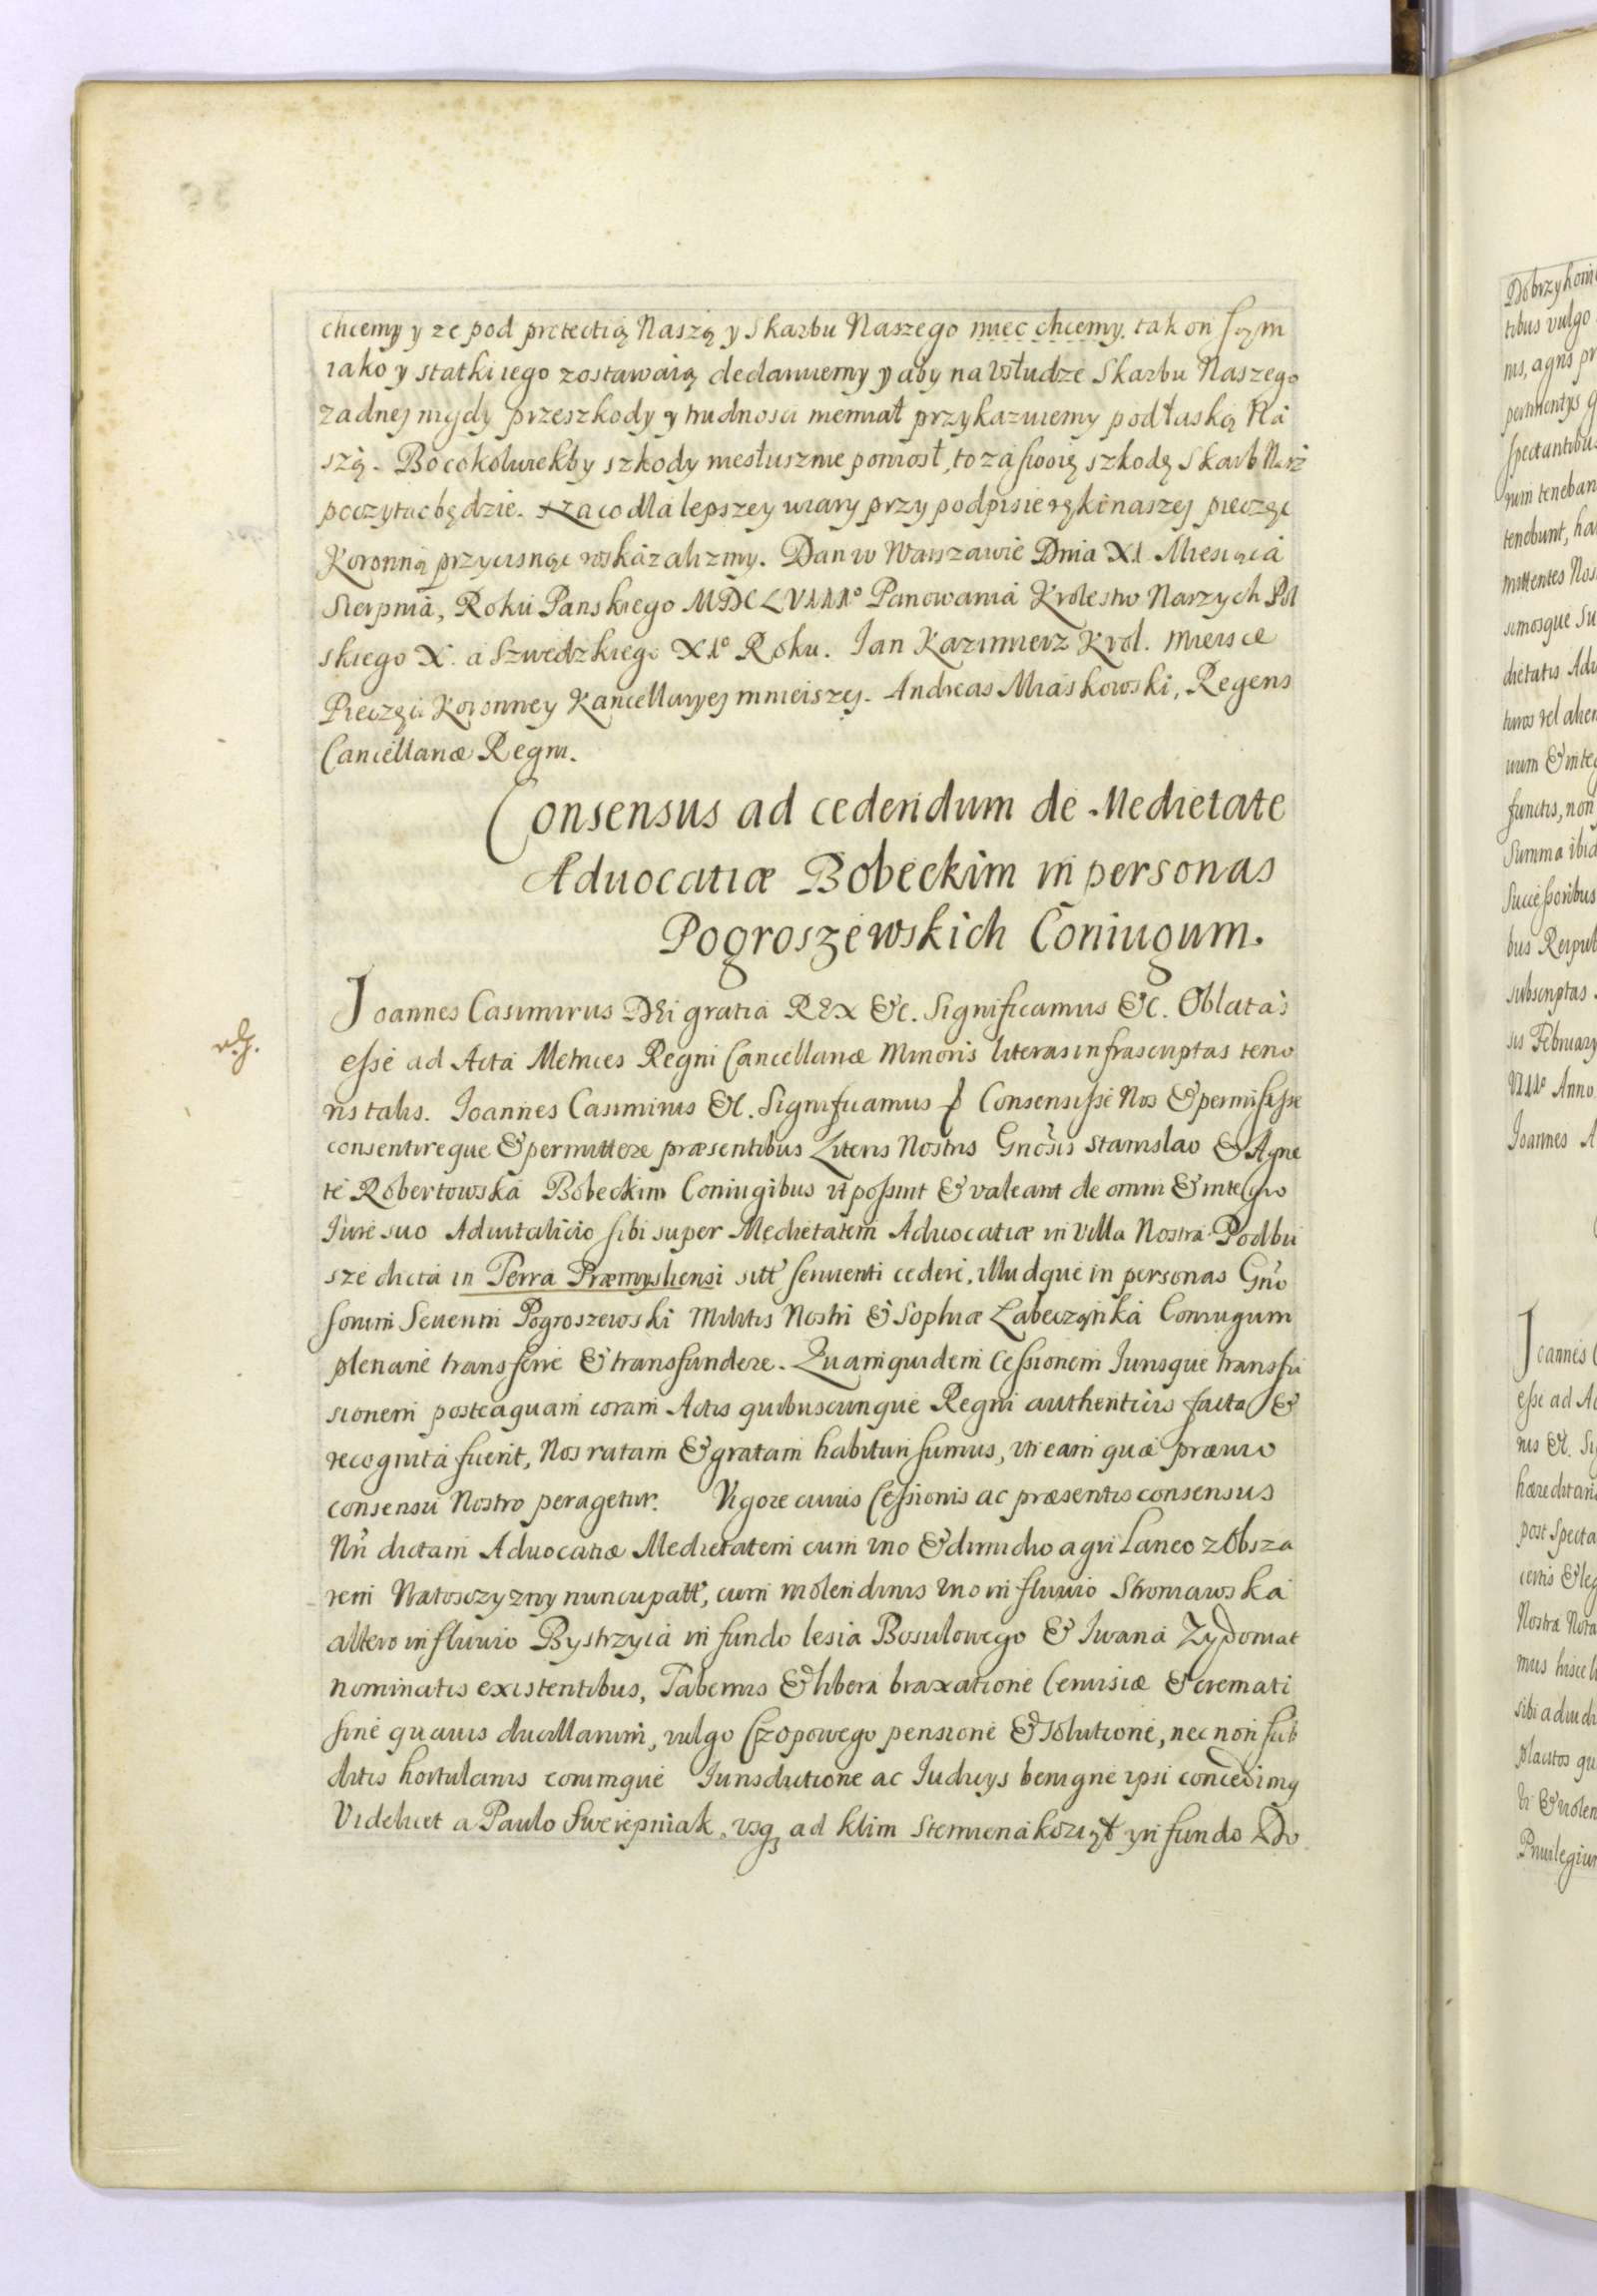 chcemy y ze pod protectią Naszą y Skarbu Naszego miec chcemy. tak on sąm
iako y statki iego zostawaią declaruiemy y aby na vsłudze Skarbu Naszego
zadnej nigdy przeszkody y trudnosci niemiał przykazuiemy pod łaską Na
szą. Bo cokolwiekby szkody niesłusznie poniosł, to za swoię szkodę Skarb Nasz
poczytac będzie. Na co dla lepszey wiary przy podpisie ręki naszej pieczęc
Koronną przycisnąc roskazalizmy. Dan w Warszawie Dnia XI. Miesiąca
Sierpnia, Roku Panskiego MDCLVIII° Panowania Krolestw Naszych Pol
skiego X. a Szwedzkiego XI° Roku. Ian Kazimierz Krol. Mieisce
Pieczęci Koronney Kancellaryej mnieiszej. Andreas Miaskowski, Regens
Cancellariæ Regni.
Consensus ad cedendum de Medietate
Aduocatiæ Bobeckim in personas
Pogroszewskich Coniugum.
Joannes Casimirus DEi gratia REx &c. Significamus &c. Oblatas
esse ad Acta Metrices Regni Cancellariæ Minoris literas infrascriptas teno
ris talis. Joannes Casimirus &c. Significamus Consensisse Nos & permisisse
consentireque & permittere præsentibus Literis Nostris Gnosis Stanislao & Agne
te Robertowska Bobeckim Coniugibus vt possint & valeant de omni & integro
Iure suo Aduitalicio sibi super Medietatem Aduocatiæ in Villa Nostra Podbu
sze dicta in Terra Præmysliensi sitt seruienti cedere, illudque in personas Gnro
sorum Seuerini Pogroszewski Militis Nostri & Sophiæ Łabeczynka Coniugum
plenarie transferre & transfundere. Quam quidem Cessionem Iurisque transfu
sionem posteaquam coram Actis quibuscunque Regni authenticis facta &
recognita fuerit, Nos ratam & gratam habituri sumus, vti eam quæ præuio
consensu Nostro peragetur. Vigore cuius Cessionis ac præsentis consensus
Nri dictam Aduocatiæ Medietatem cum vno & dimidio agri Laneo z Obsza
rem Natosczyzny nuncupatt, cum molendinis vno in fluuio Stroniawska
altero in fluuio Bystrzyca in fundo lesia Bosulowego & Iwana Zydomat
nominatis existentibus, Tabernis & libera braxatione Ceruisiæ & cremati
sine quauis ducillarum, vulgo Czopowego pensione & solutione, nec non sub
ditis hortulanis eorumque Iurisdictione ac Iudicys benigne ipsi concedimq
Videlicet a Paulo Swierepniak, vsq ad klim in fundo Do